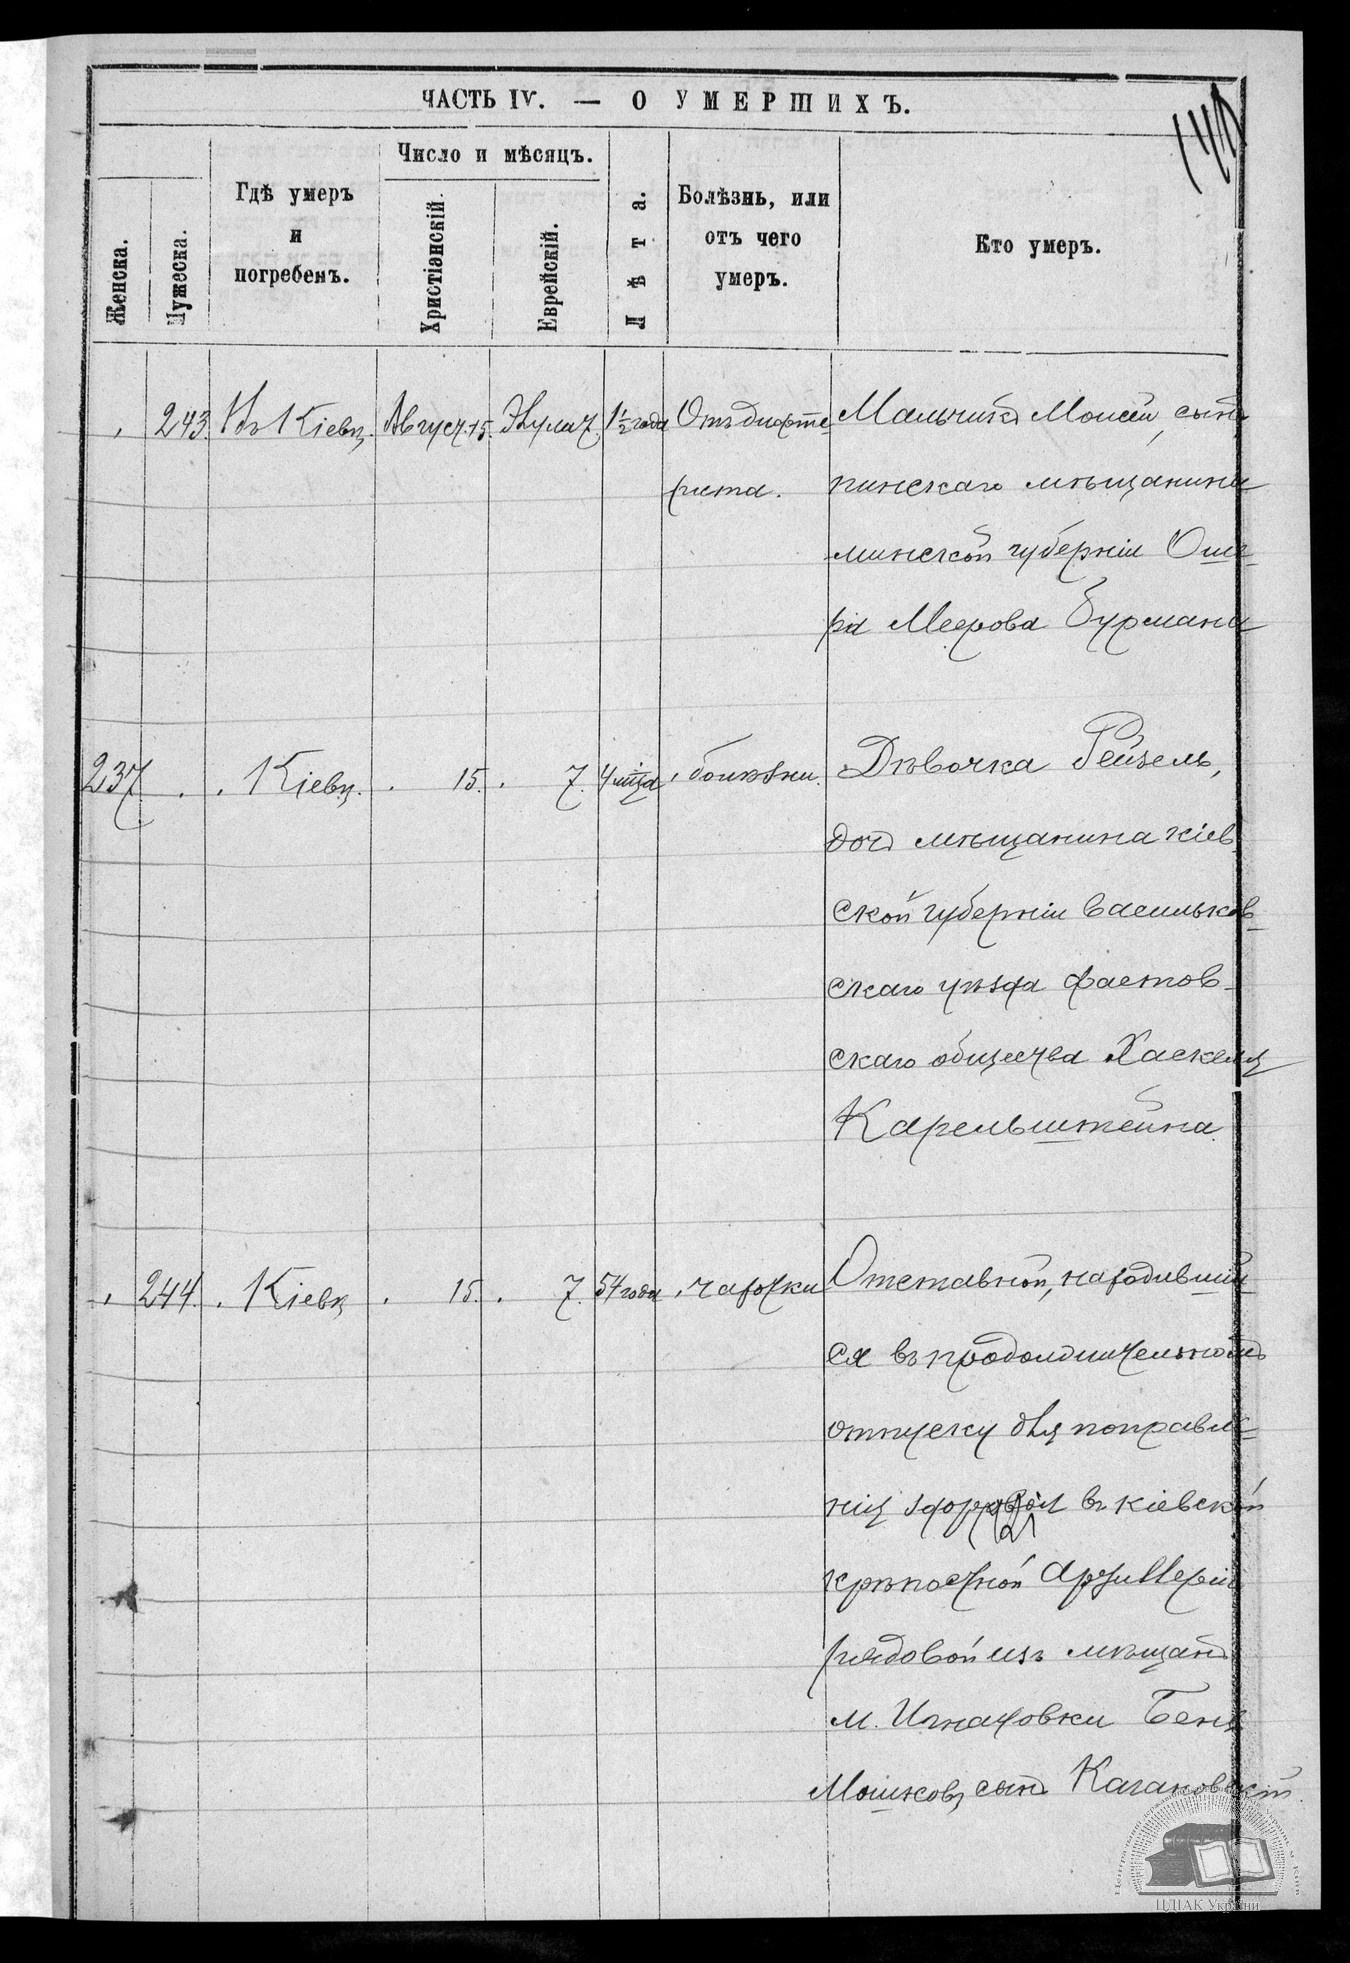 ЧАСТЬ IV. — О УМЕРШИХЪ.
Женска.
Мужеска.
Гдѣ умеръ
и
погребенъ.
Число и мѣсяцъ.
Христіанскій.
Еврейскій.
Лѣта.
Болѣзнь, или
отъ чего
умеръ.
Кто умеръ.
243. Въ Кіевѣ. Август. 15. Элула 7. 1½ года Отъ дифте-
рита.
Мальчикъ Моисей, сынъ
пинскаго мѣщанина
минской губерніи Оше-
ра Меерова Бурмана
237. Кіевѣ. 15. 7. 4 мѣсца болѣзни.
Дѣвочка Рейзель,
дочь мѣщанина кіев-
ской губерніи васильков-
скаго уѣзда фастов-
скаго общества Хаскеля
Карельштейна.
244. Кіевѣ 15. 7. 54 года чахотки
Отставной, находивший
ся въ продолжительномъ
отпуску для поправле-
нія здоровья въ кіевской
крѣпостной Артиллеріи
рядовой изъ мѣщанъ
м. Игнатовки Бенѣ
Мошковъ сынъ Кагановскій.
ЦДІАК України